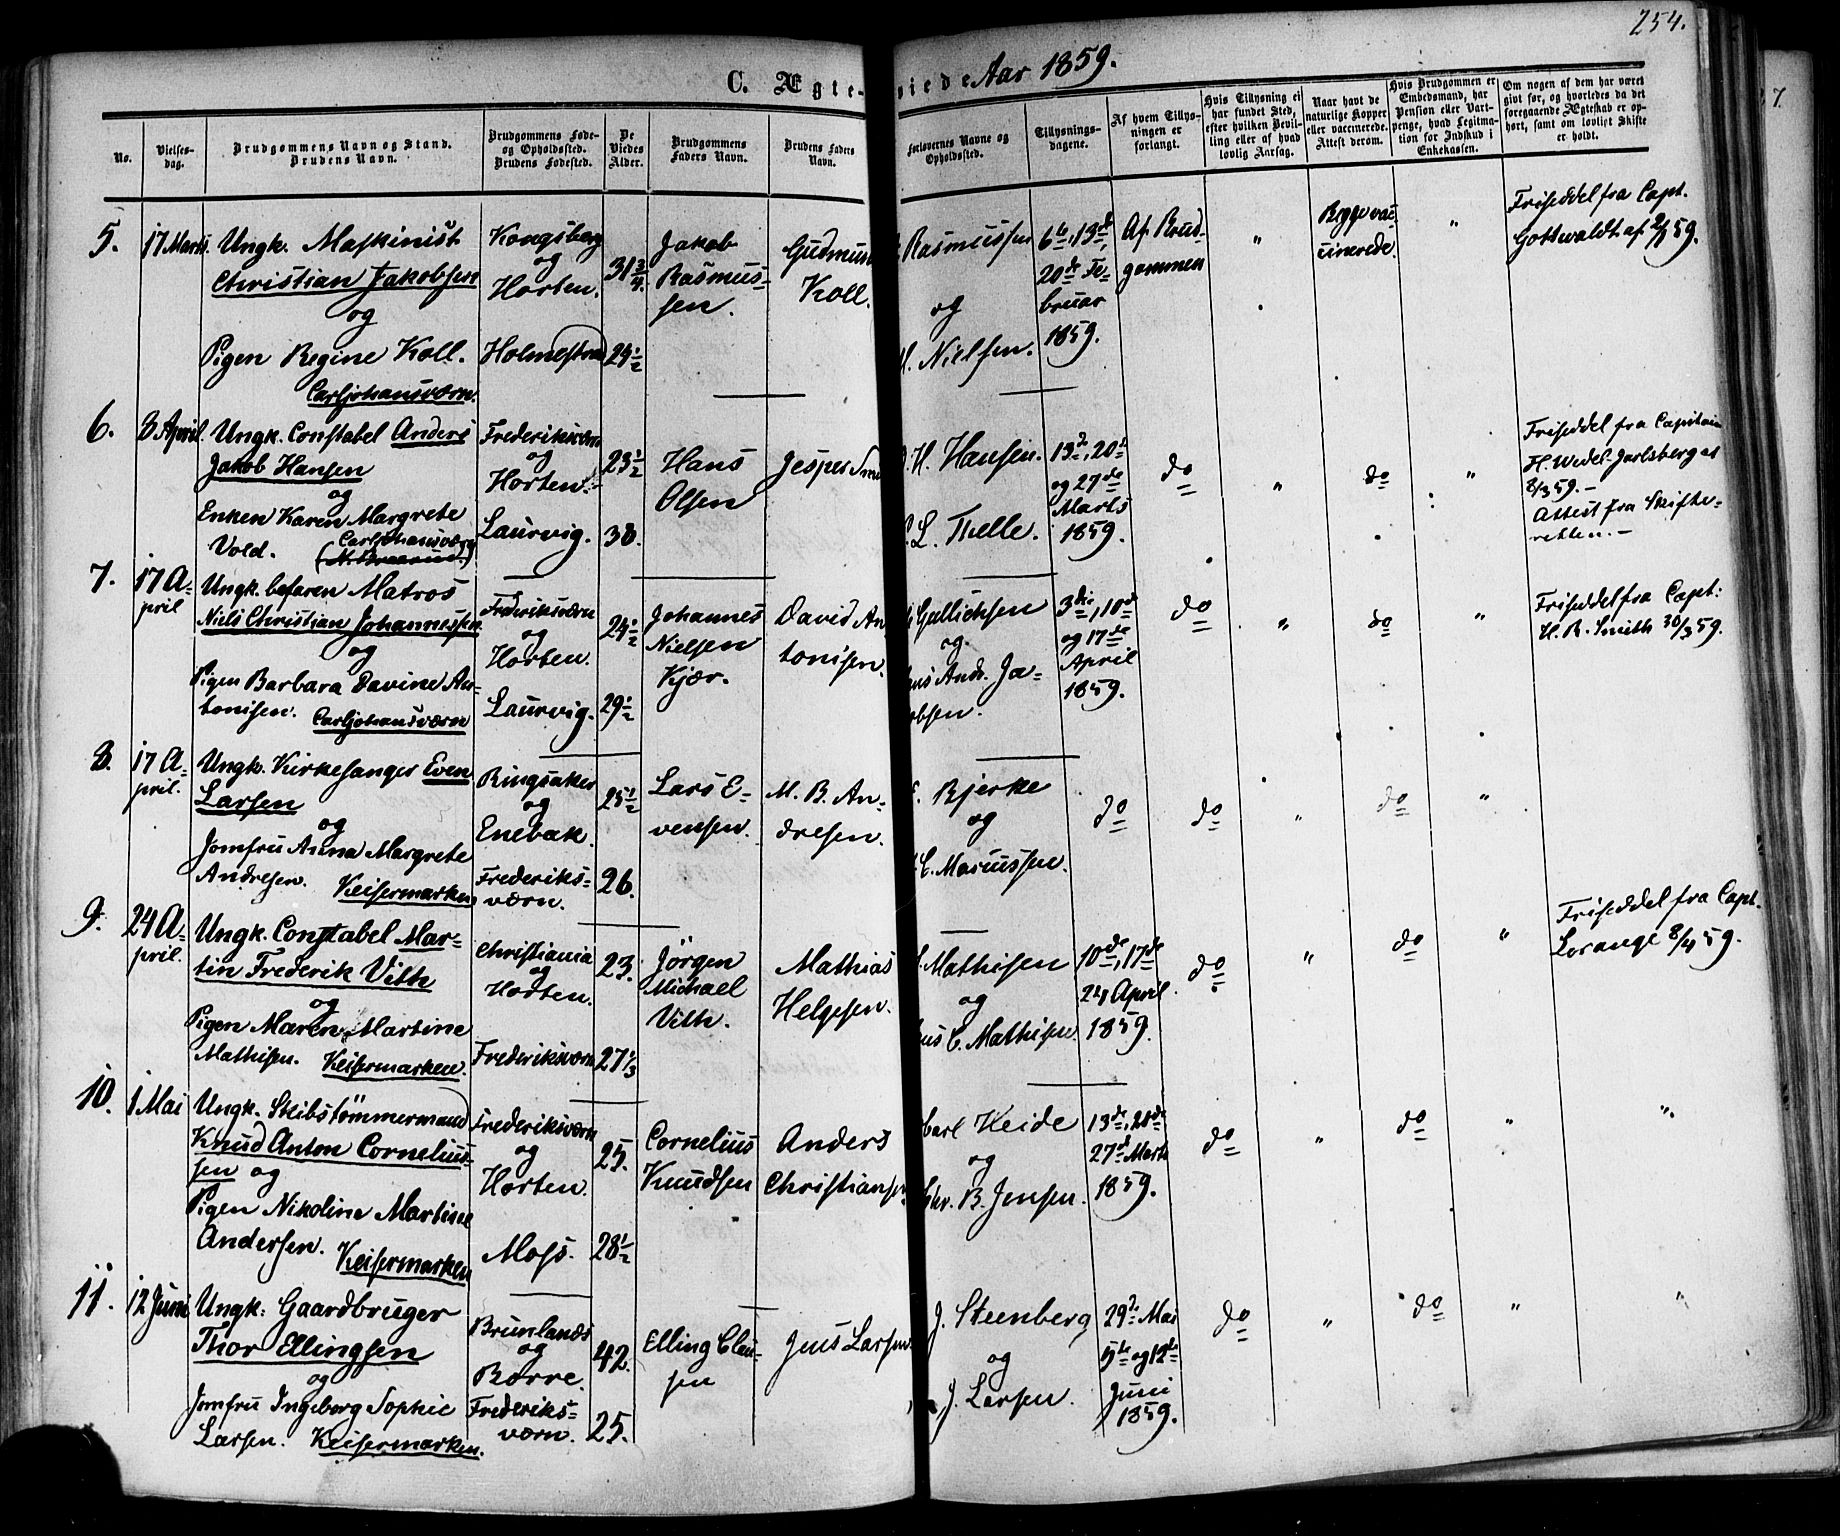 254.
C. Ægte- viede Aar 1859.
No.
Vielses-
dag.
Brudgommens Navn og Stand.
Brudens Navn.
Brudgommens Føde-
og Opholdssted.
Brudens Fødested.
De
Viedes
Alder.
Brudgommens
Faders Navn.
Brudens Faders
Navn.
Forlovernes Navne og
Opholdssted.
Tillysnings-
dagene.
Af hvem Tillys-
ningen er
forlangt.
Hvis Tillysning ei
har fundet Sted,
efter hvilken Bevil-
ling eller af hvad
lovlig Aarsag.
Naar havt de
naturlige Kopper
eller vaccinerede.
Attest derom.
Hvis Brudgommen er
Embedsmand, har
Pension eller Vart-
penge, hvad Legitma-
tion for Indskud i
Enkekassen.
Om nogen af dem har været
givt før, og hvorledes da det
foregaaende Ægteskab er op-
hørt, samt om lovligt Skifte
er holdt.
5.
17 Marts.
Ungk. Maskinist
Christian Jakobsen
og
Pigen Regine Koll.
Carljohansværn.
Kongsberg
og
Horten.
Holmestrand
31 3/4.
29 1/2
Jakob
Rasmus-
sen.
Gudmund
Koll.
Rasmussen
og
H. Nielsen.
6te, 13de,
20de Fe-
bruar
1859.
Af Brud-
gommen
"
Begge vac-
cinerede.
"
Friseddel fra Capt.
Gottwaldt af 2/1 59.
6.
8 April.
Ungk. Constabel Anders
Jakob Hansen
og
Enken Karen Margrete
Vold.
Carljohansværn
Frederiksværn
og
Horten.
Laurvig.
23 1/2
30.
Hans
Olsen
Jesper
H. Hansen.
L. Thelle.
13de, 20de
og 27de
Marts
1859.
do
"
do
"
Friseddel fra Capitain
H. Wedel-Jarlsberg af
8/3 59.-
Attest fra Skifte-
retten.-
7.
17 A-
pril
Ungk. befaren Matros
Niels Christian Johannessen
og
Pigen Barbara Davine An-
tonisen. Carljohansværn
Frederiksværn
og
Horten.
Laurvig.
24 1/2
29 1/2
Johannes
Nielsen
Kjær.
David An-
tonisen.
Gullichsen
og
Andr. Ja-
obsen.
3die, 10de
og 17de
April
1859.
do
"
do
"
Friseddel fra Capt:
H. R. Smith 30/3 59.
8.
17 A-
pril.
Ungk. Kirkesanger Even
Larsen
og
Jomfru Anna Margrete
Andresen. Keisermarken
Ringsaker
og
Enebak.
Frederiks-
værn.
25 1/2
26.
Lars E-
vensen.
M. B. An-
dresen.
Bjerke
og
C. Marcussen.
do
do
"
do
"
9.
24 A-
pril.
Ungk. Constabel Mar-
tin Frederik Vith
og
Pigen Maren Martine
Mathisen. Keisermarken.
Christiania
og
Horten.
Frederiksværn
23.
27 1/3
Jörgen
Michael
Vith.
Mathias
Helgesen.
Mathisen
og
C. Mathisen.
10de, 17de
24 April
1859.
do
"
do
"
Friseddel fra Capt.
Lorange 8/4 59.
10.
1 Mai
Ungk. Skibstömmermand
Knud Anton Cornelius-
sen og
Pigen Nikoline Martine
Andersen. Keisermarken
Frederiksværn
og
Horten.
Moss.
25.
28 1/2
Cornelius
Knudsen
Anders
Christiansen
Carl Heide
og
Chr. B. Jensen.
13de, 20de
27de Marts
1859.
do
"
do
"
"
11.
12 Juni
Ungk: Gaardbruger
Thor Ellingsen
og
Jomfru Ingeborg Sophie
Larsen. Keisermarken.
Brunlands
og
Borre.
Frederiks-
værn.
42.
25.
Elling Clau-
sen
Jens Larsen.
J. Steenberg
og
J. Larsen.
29de Mai
5te og 12te
Juni
1859.
do
"
do
"
"